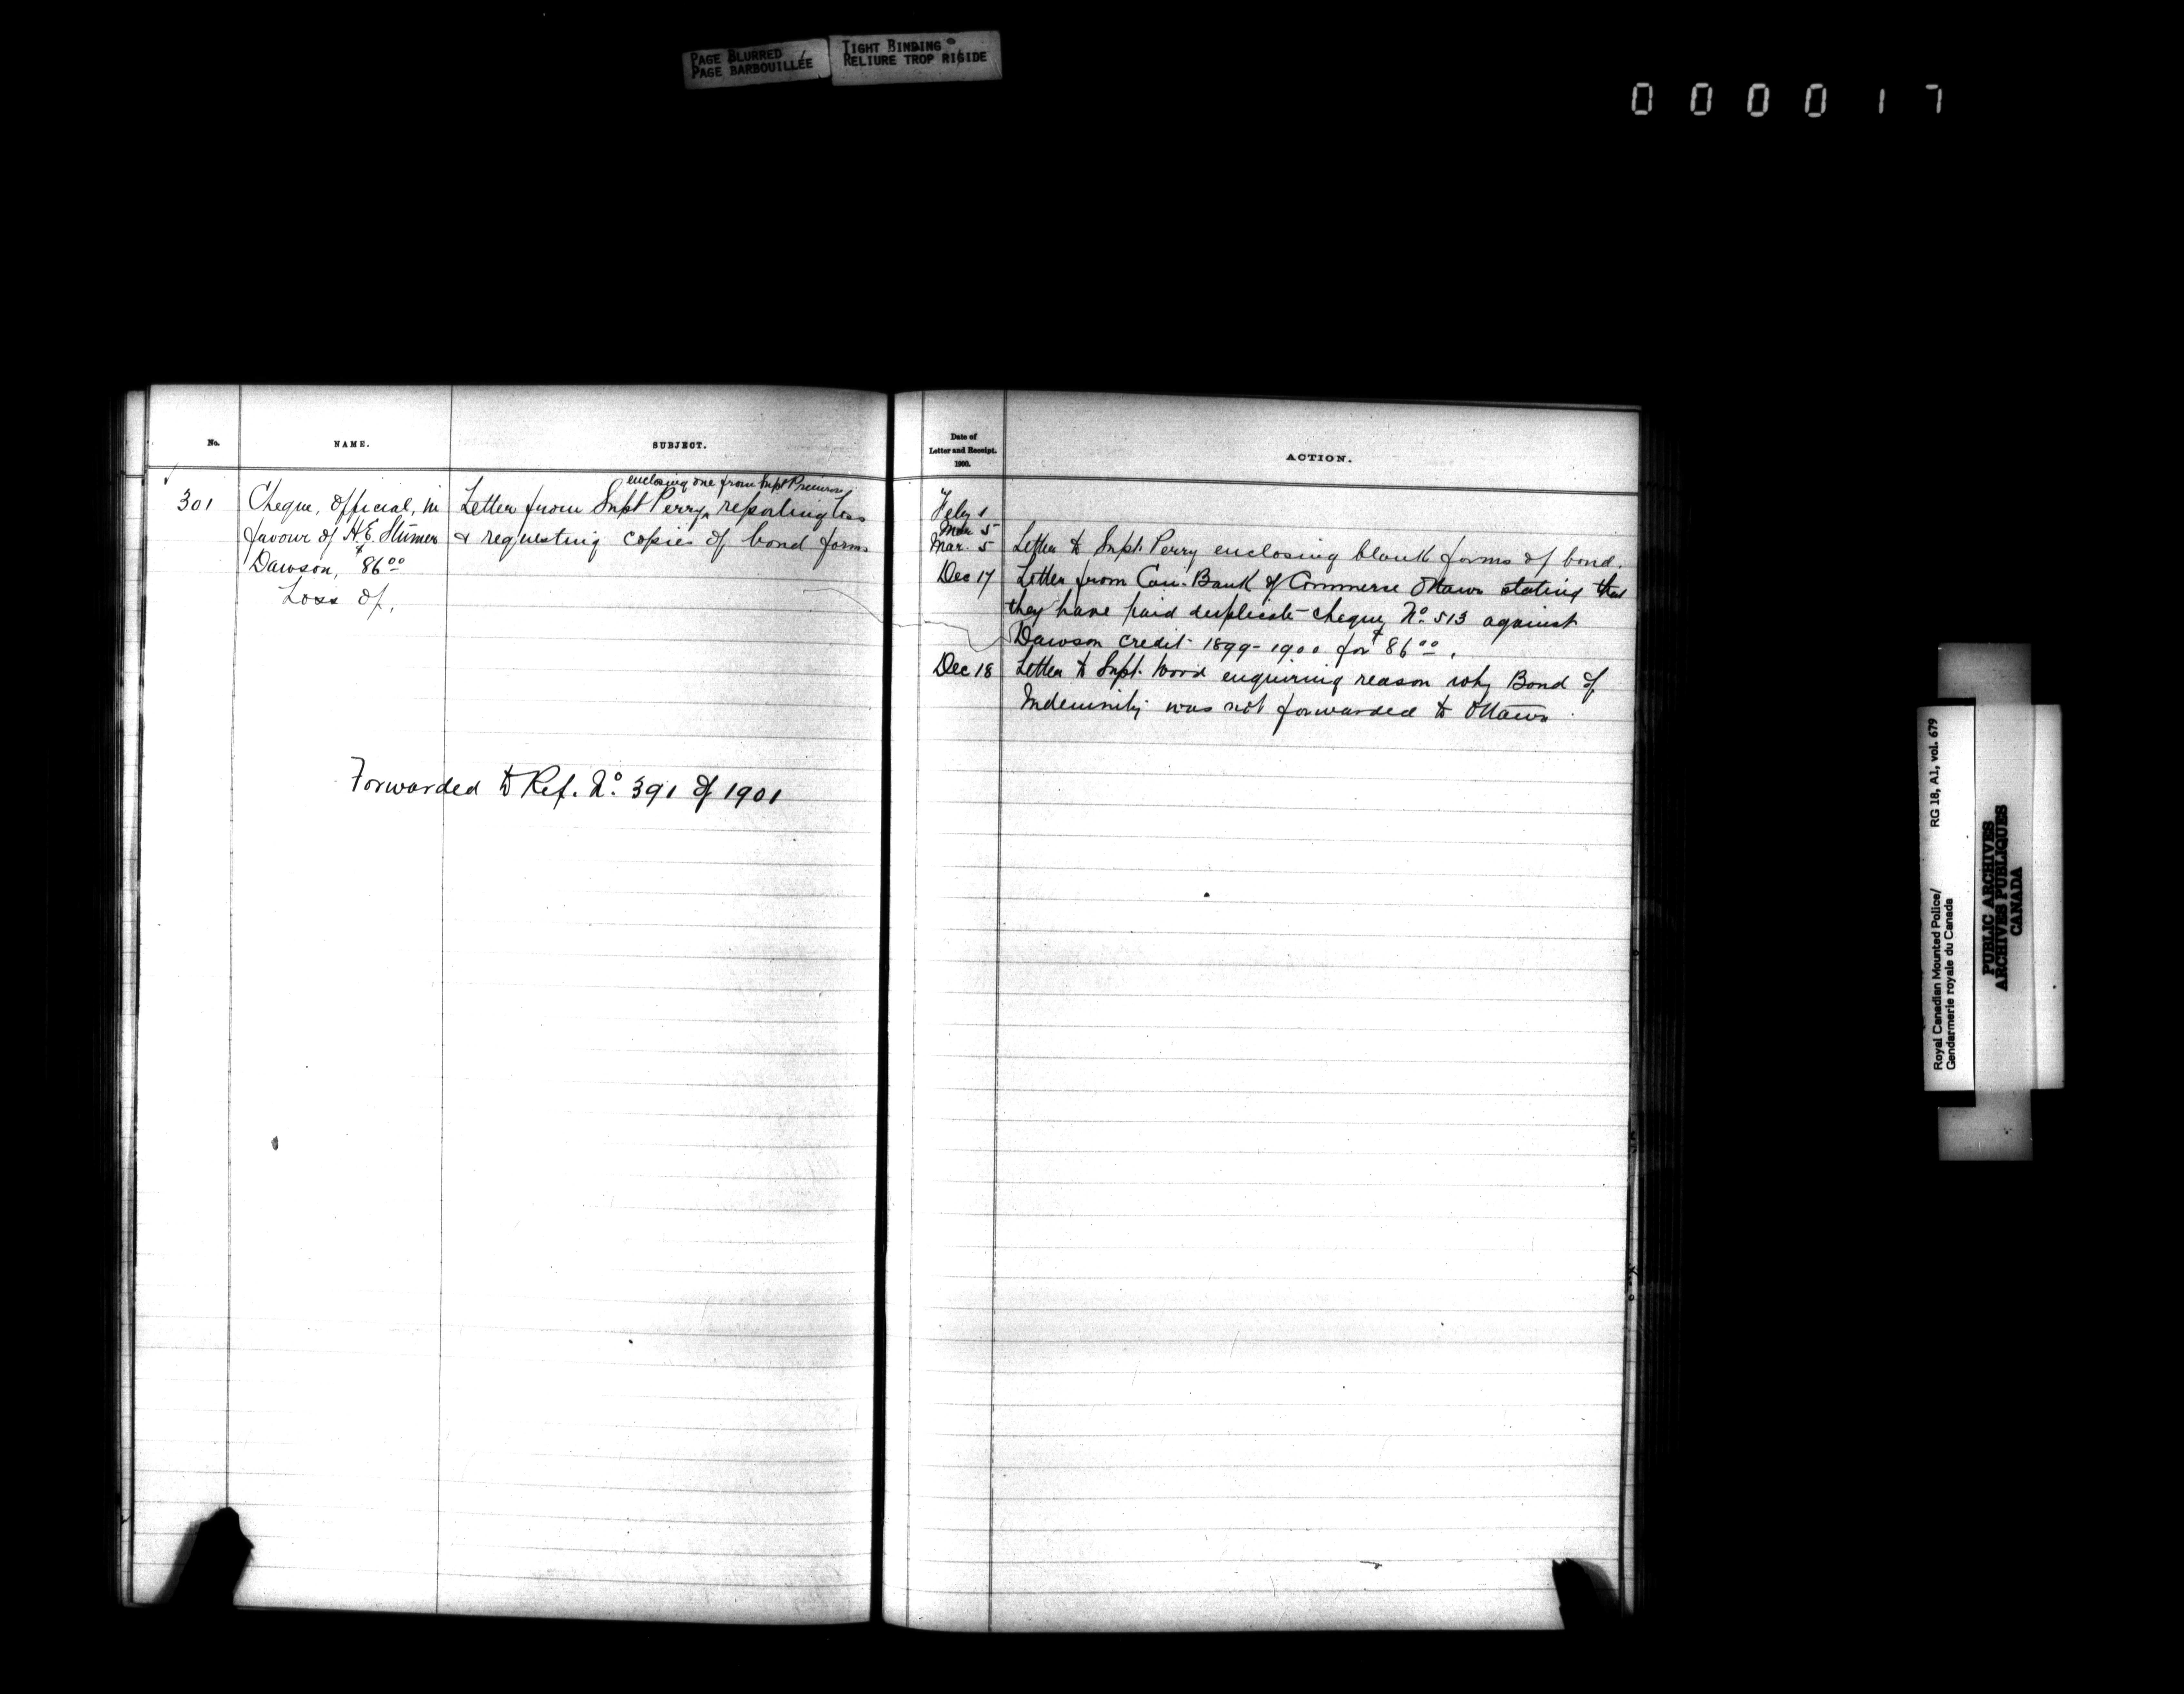 PAGE BLURRED
PAGE BARBOUILLÉE
TIGHT BINDING
RELIURE TROP RIGIDE
000017
No.
NAME.
SUBJECT.
301
Cheque, Official, in
favour of H.E. Stumer
Dawson, $86.00
Loss of,
enclosing one from Inspt
Letter from Supt Perry, reporting loss
& requesting copies of bond forms
Forwarded to Ref. No. 391 of 1901
Date of
Letter and Receipt.
1900.
ACTION.
Feby 1
Mar 5
Mar. 5 Letter to Supt. Perry enclosing blank forms of bond.
Dec 17 Letter from Can. Bank of Commerce Ottawa stating that
they have paid duplicate cheque No. 513 against
Dawson credit 1899-1900 for $86.00.
Dec 18 Letter to Supt. Wood enquiring reason why Bond of
Indemnity was not forwarded to Ottawa.
Royal Canadian Mounted Police/
Gendarmerie royale du Canada
RG 18, A1, vol. 679
PUBLIC ARCHIVES
ARCHIVES PUBLIQUES
CANADA